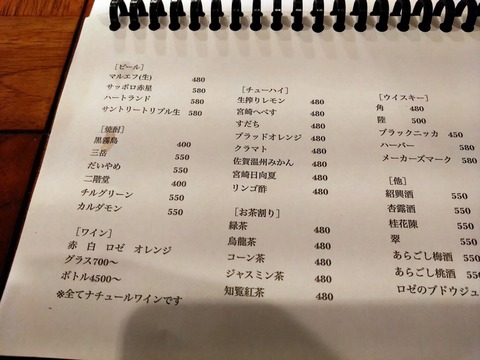 [ビール]
マルエフ(生) 480
サッポロ赤星 580
ハートランド 580
サントリートリプル生 580
[焼酎]
黒霧島 400
三岳 550
だいやめ 550
二階堂 400
チルグリーン 550
カルダモン 550
[ワイン]
赤 白 ロゼ オレンジ
グラス700〜
ボトル4500〜
※全てナチュールワインです
[チューハイ]
生搾りレモン 480
宮崎へべす 480
すだち 480
ブラッドオレンジ 480
クラマト 480
佐賀温州みかん 480
宮崎日向夏 480
リンゴ酢 480
[お茶割り]
緑茶 480
烏龍茶 480
コーン茶 480
ジャスミン茶 480
知覧紅茶 480
[ウイスキー]
角 480
陸 500
ブラックニッカ 450
ハーパー 580
メーカーズマーク 580
[他]
紹興酒 550
杏露酒 550
桂花陳 550
翠 550
あらごし梅酒 550
あらごし桃酒 550
ロゼのブドウジュ